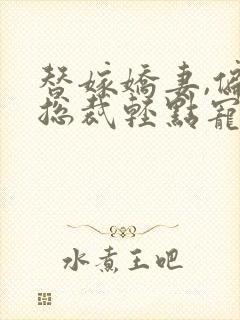 替嫁嬌妻,偏
總裁輕點寵
水煮王吧